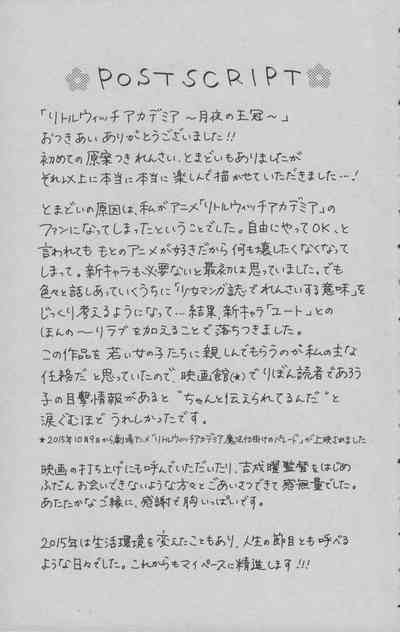 POSTSCRIPT
「リトルウィッチアカデミア ～月夜の王冠～」
おつきあい ありがとうございました!!
初めての原案つきれんさい、とまどいもありましたが
それ以上に本当に本当に楽しんで描かせていただきました…!
とまどいの原因は、私がアニメ「リトルウィッチアカデミア」の
ファンになってしまったということでした。自由にやってOK、と
言われても もとのアニメが好きだから何も壊したくなくなって
しまって。新キャラも必要ないと最初は思っていました。でも
色々と話しあっていくうちに「少女マンガ誌でれんさいする意味」を
じっくり考えるようになって…結果、新キャラ「ユート」との
ほんの～りラブを加えることで落ちつきました。
この作品を若い女の子たちに親しんでもらうのが私の主な
任務だと思っていたので、映画館(*)でりぼん読者であろう
子の目撃情報があると"ちゃんと伝えられてるんだ"と
涙ぐむほどうれしかったです。
*2015年10月9日から劇場アニメ「リトルウィッチアカデミア 魔法仕掛けのパレード」が上映されました
映画の打ち上げにも呼んでいただいたり、吉成曜監督をはじめ
ふだんお会いできないような方々とごあいさつできて感無量でした。
あたたかなご縁に、感謝で胸いっぱいです。
2015年は生活環境を変えたこともあり、人生の節目とも呼べる
ような日々でした。これからもマイペースに精進します!!!